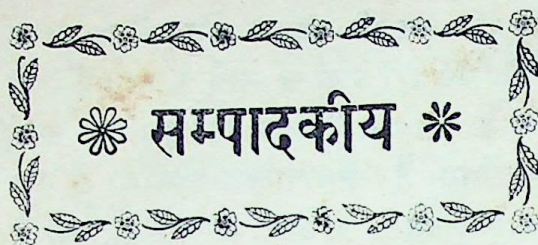 सम्पादकीय